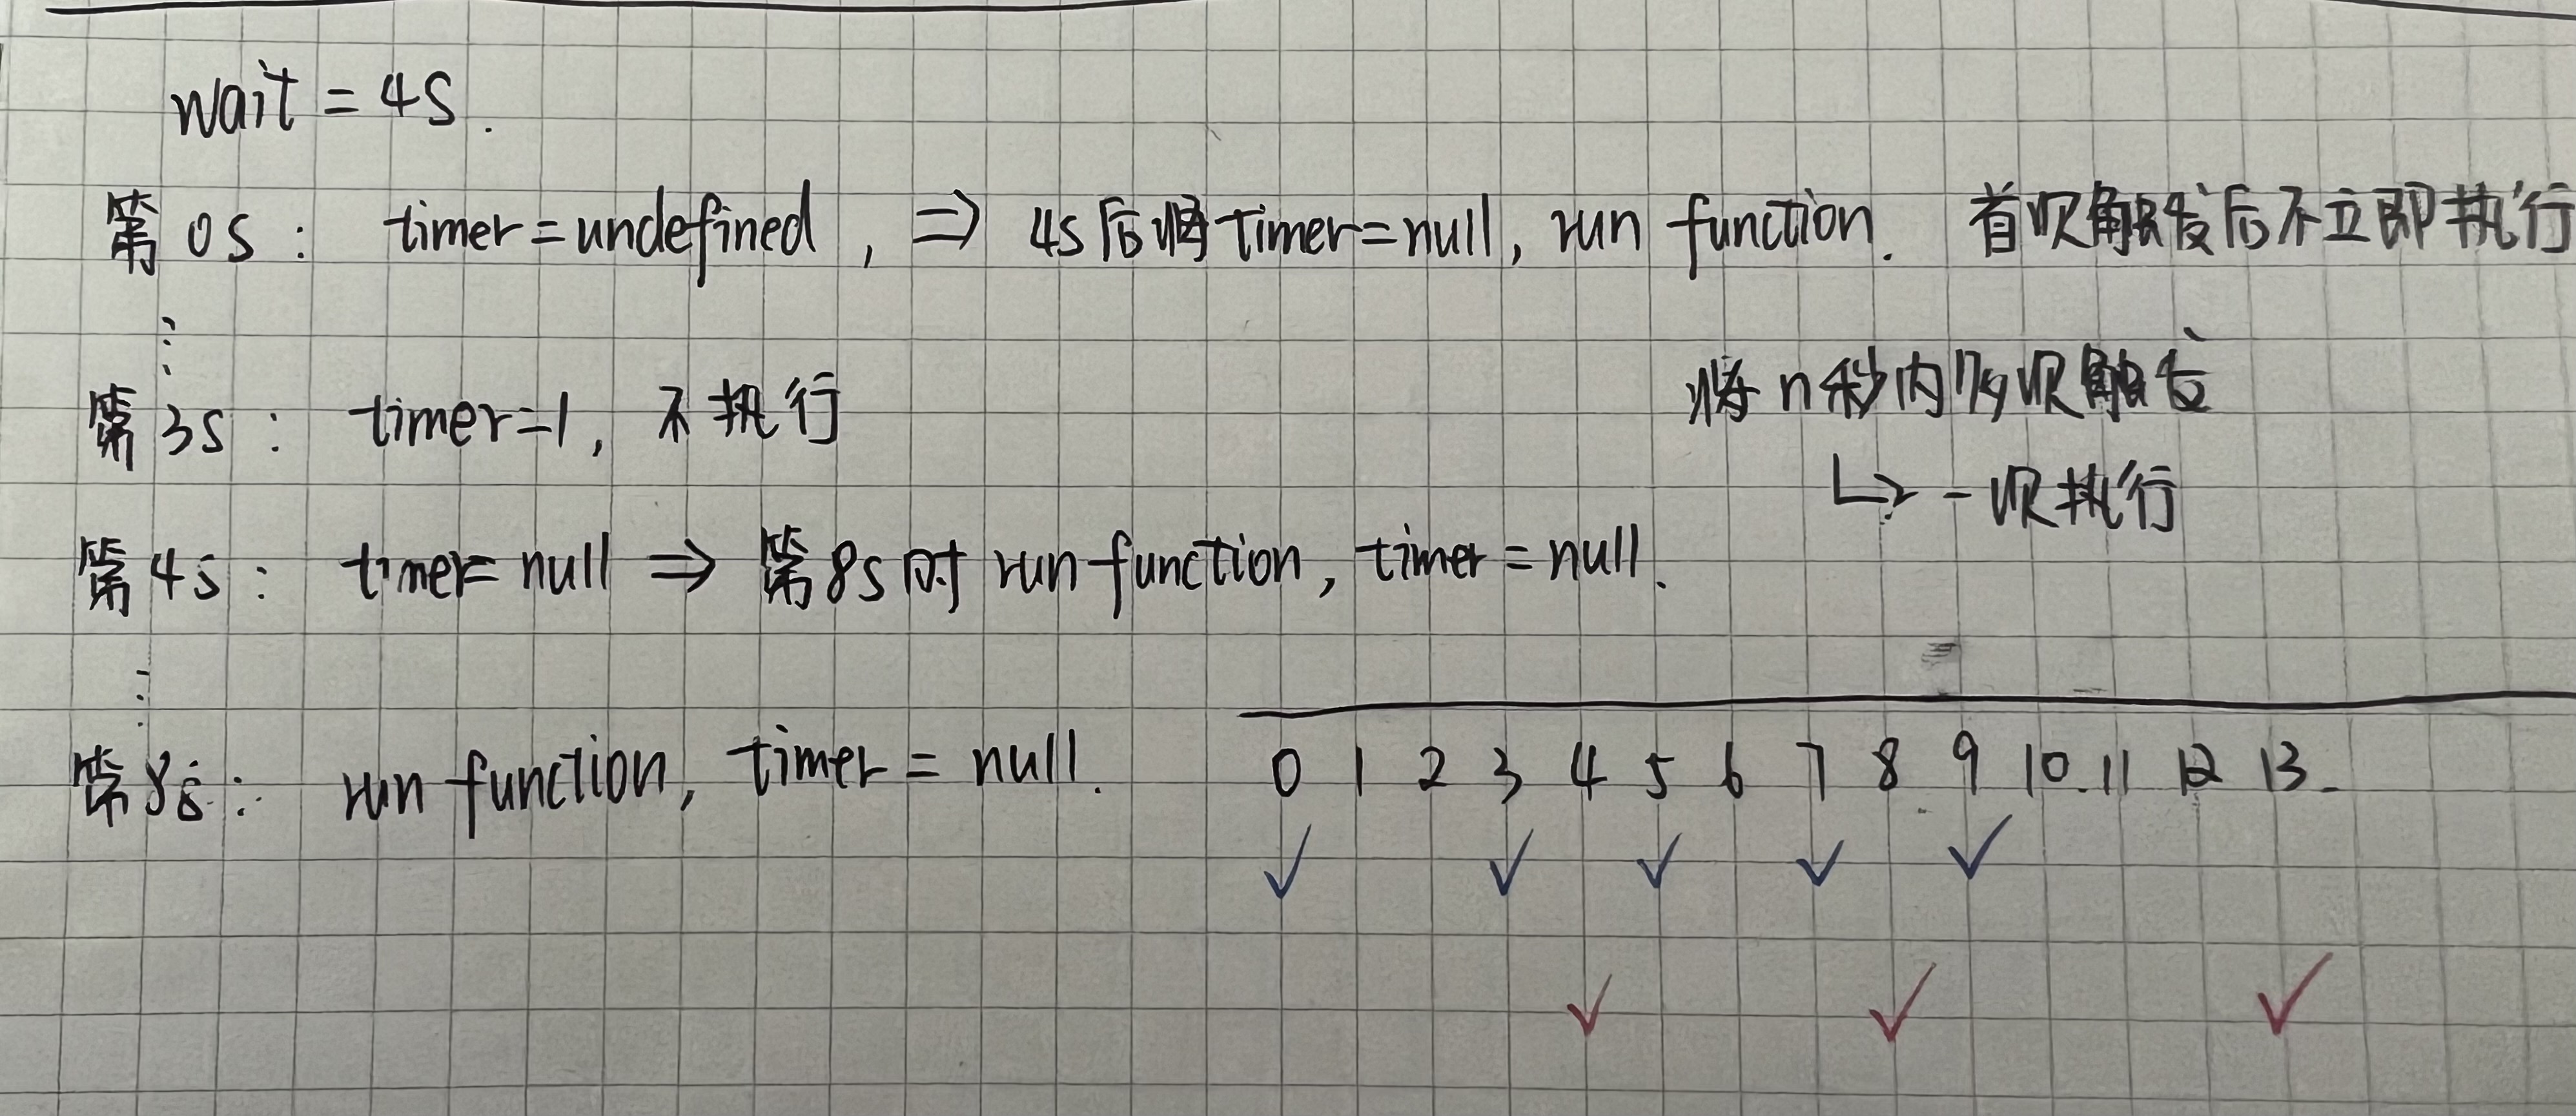 wait = 4S.
第0S： timer=undefined，⇒ 4s后将timer=null，run function. 首次触发后不立即执行
⋮
第3S： timer=1，不执行
将n秒内多次触发
↳ 一次执行
第4s： timer=null ⇒ 第8s时run function，timer=null.
⋮
第8s： run function，timer=null.
0 1 2 3 4 5 6 7 8 9 10 11 12 13
✓ ✓ ✓ ✓ ✓
✓ ✓ ✓